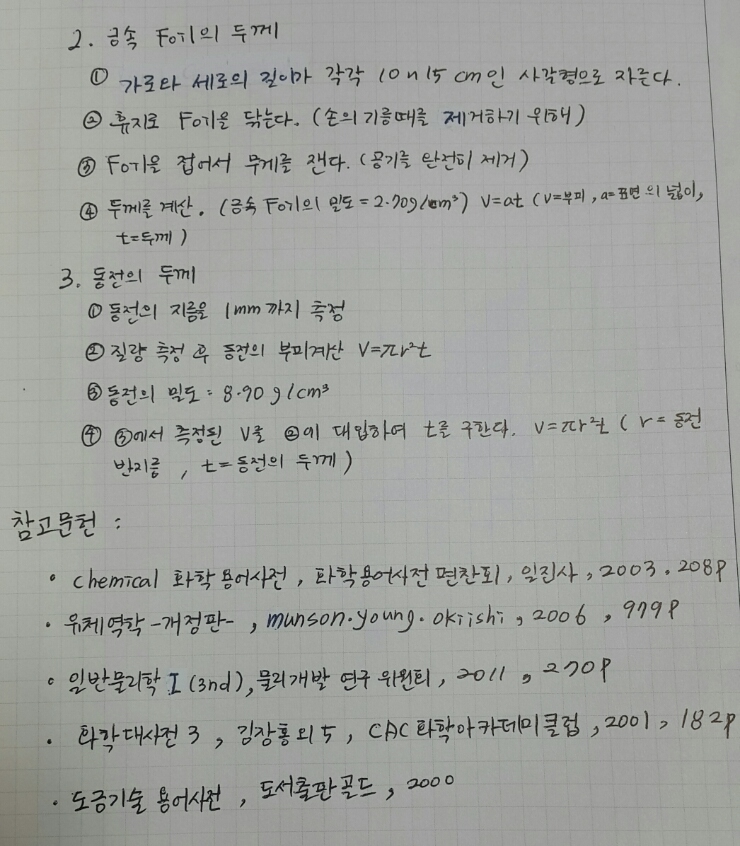 2. 금속 Foil의 두께
① 가로와 세로의 길이가 각각 10 n 15 cm인 사각형으로 자른다.
② 휴지로 Foil을 닦는다. (손의 기름때를 제거하기 위해)
③ Foil을 접어서 무게를 잰다. (공기를 완전히 제거)
④ 두께를 계산. (금속 Foil의 밀도 = 2.70g/cm³) V=at (V=부피, a=표면의 넓이,
t=두께)
3. 동전의 두께
① 동전의 지름을 1mm 까지 측정
② 질량 측정 후 동전의 부피계산 V=πr²t
③ 동전의 밀도 : 8.90 g/cm³
④ ③에서 측정된 V를 ②에 대입하여 t를 구한다. V=πr²t (r = 동전
반지름, t=동전의 두께)
참고문헌 :
• chemical 화학용어사전, 화학용어사전 편찬회, 일진사, 2003. 208p
• 유체역학-개정판-, munson.young.okiishi, 2006, 979p
• 일반물리학 I (3nd), 물리개발 연구 위원회, 2011, 270p
• 화학대사전 3, 김창홍외 5, CAC 화학아카데미클럽, 2001, 182p
• 도금기술 용어사전, 도서출판골드, 2000